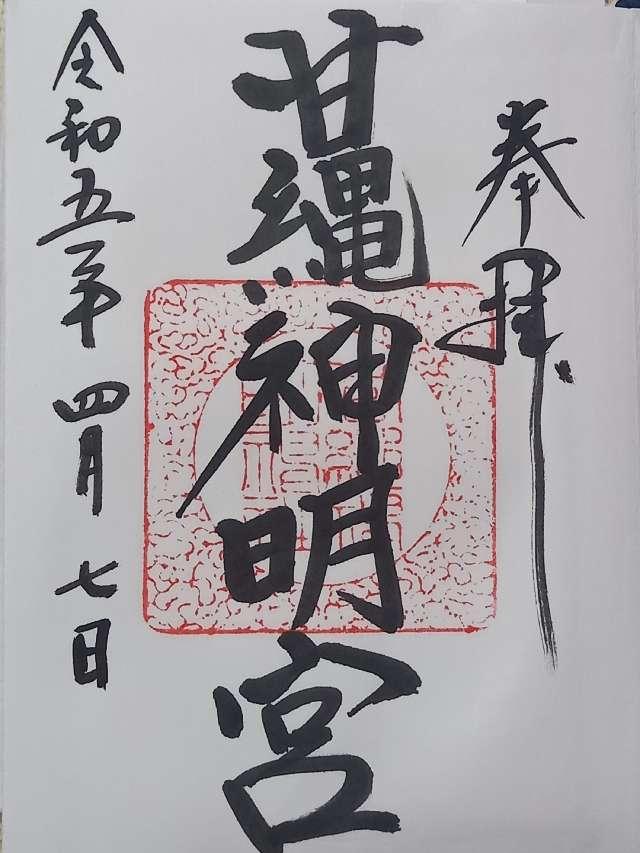 奉拝
甘縄神明宮
令和五年四月七日